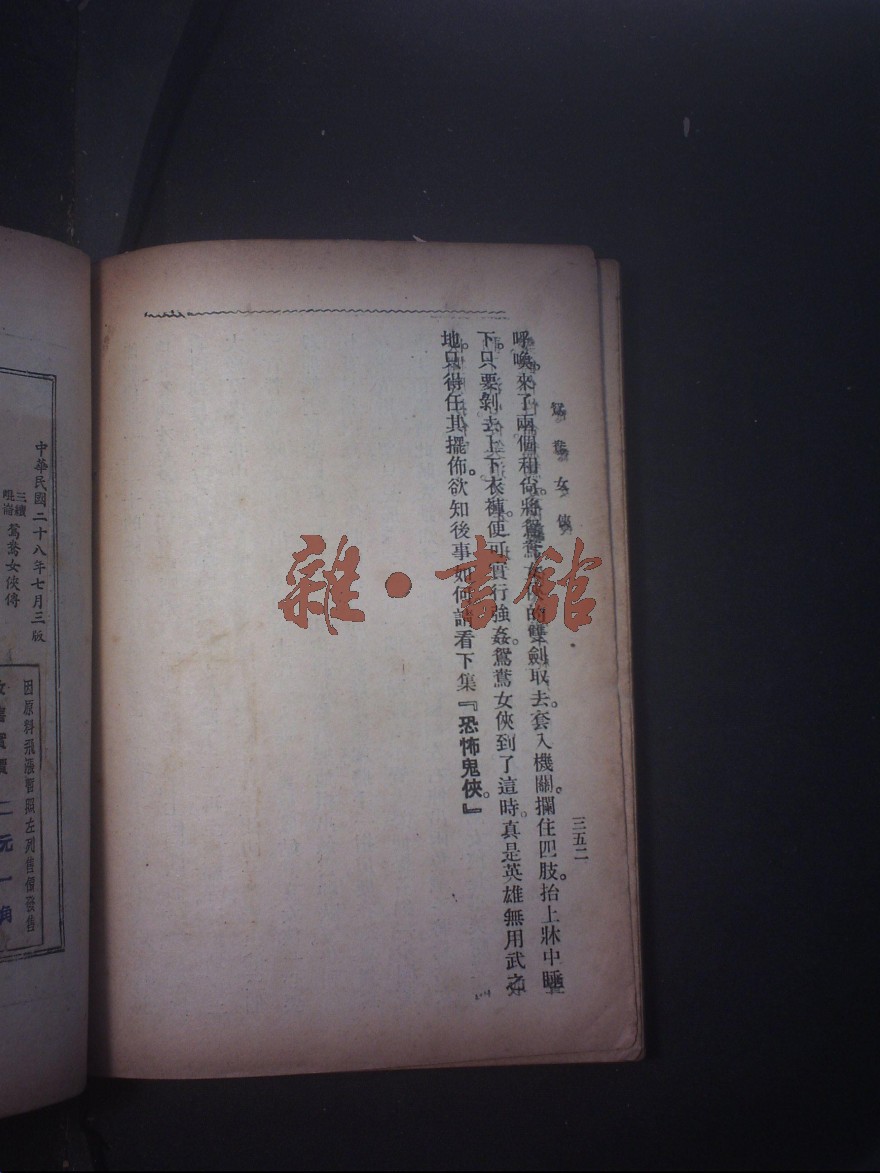 鴛鴦女俠
三五二
呼喚來了兩個和尙。將鴛鴦女俠的雙劍取去。套入機關。攔住四肢。抬上牀中睡
下。只要剝去上下衣褲。便可實行強姦。鴛鴦女俠到了這時。真是英雄無用武之
地。只得任其擺佈。欲知後事如何請看下集『恐怖鬼俠。』
雜·書館
中華民國二十八年七月三版
三續
崐崙
鴛鴦女俠傳
因原料飛漲暫照左列售價發售
實價二元一角